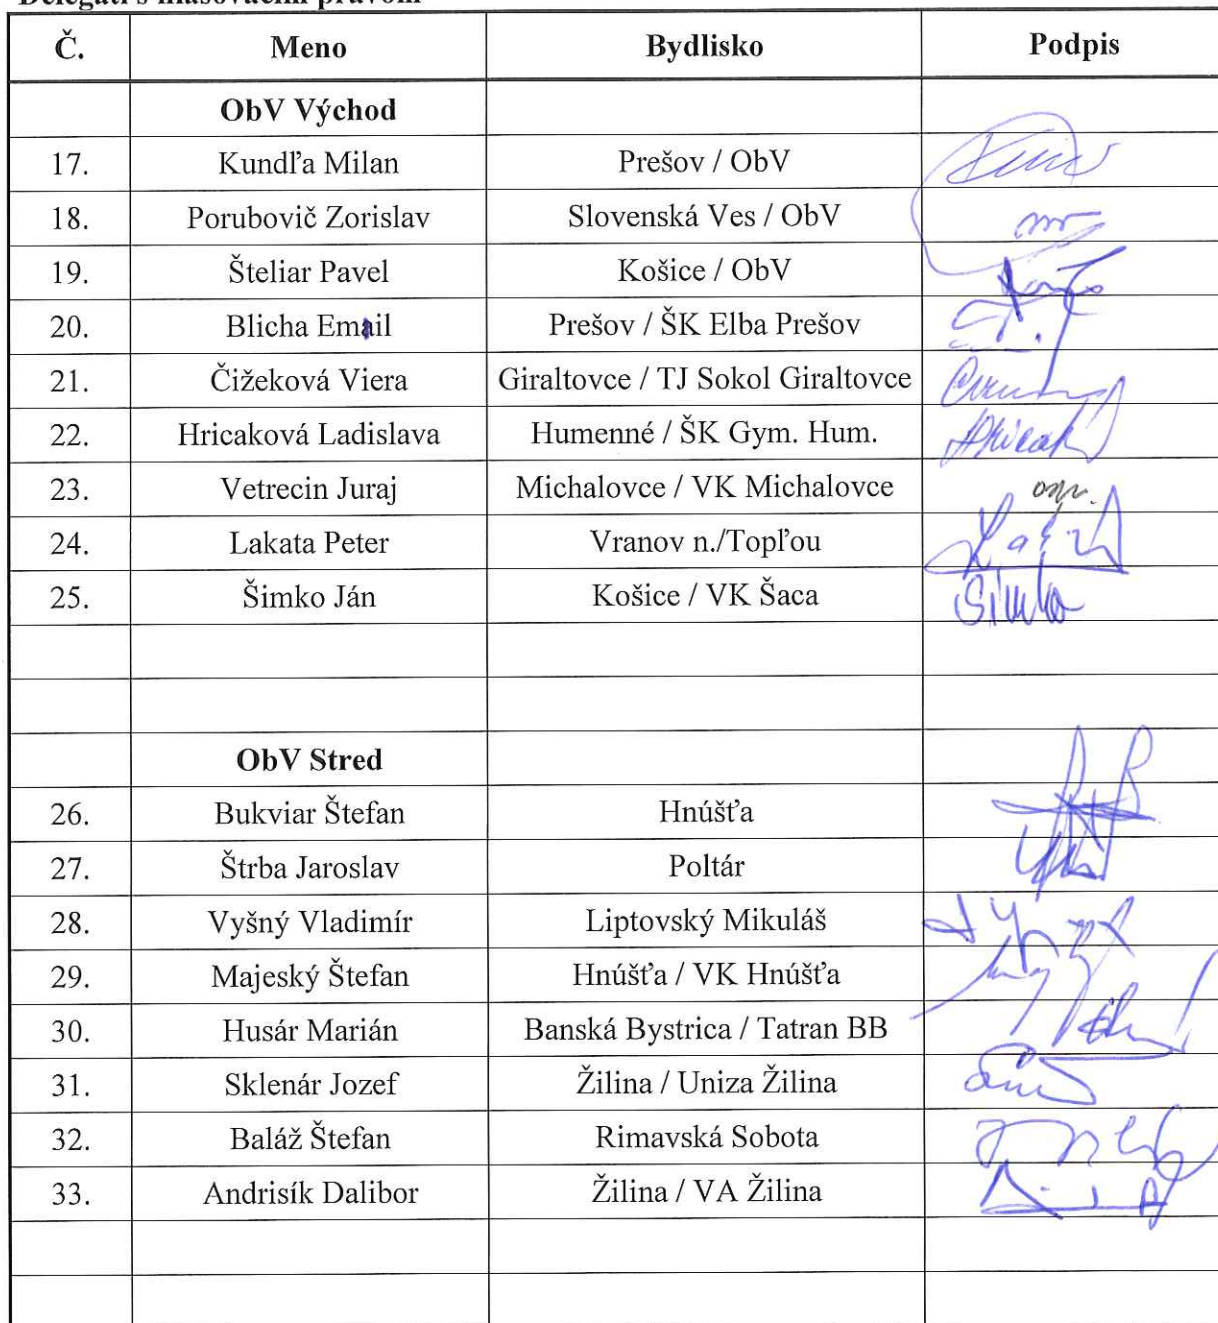 Delegáti s hlasovacím právom
Č. Meno Bydlisko Podpis
ObV Východ
17. Kundľa Milan Prešov / ObV
18. Porubovič Zorislav Slovenská Ves / ObV
19. Šteliar Pavel Košice / ObV
20. Blicha Email Prešov / ŠK Elba Prešov
21. Čižeková Viera Giraltovce / TJ Sokol Giraltovce
22. Hricaková Ladislava Humenné / ŠK Gym. Hum. Hricak
23. Vetrecin Juraj Michalovce / VK Michalovce
24. Lakata Peter Vranov n./Topľou
25. Šimko Ján Košice / VK Šaca Šimko
ObV Stred
26. Bukviar Štefan Hnúšťa
27. Štrba Jaroslav Poltár
28. Vyšný Vladimír Liptovský Mikuláš
29. Majeský Štefan Hnúšťa / VK Hnúšťa
30. Husár Marián Banská Bystrica / Tatran BB
31. Sklenár Jozef Žilina / Uniza Žilina
32. Baláž Štefan Rimavská Sobota
33. Andrisík Dalibor Žilina / VA Žilina